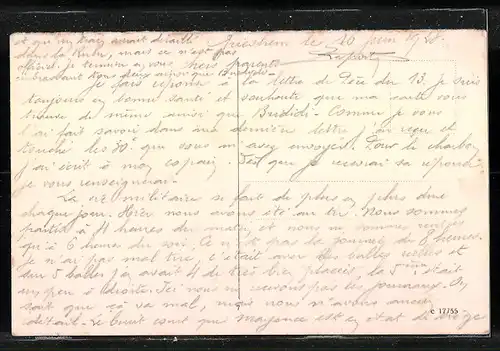 et qu'un train aurait déraillé
dans la Ruhr, mais ce n'est pas
officiel. Je termine en vous chers parents
embrassant tous deux ainsi que
le 20 juin 19
Je fais réponse à la lettre de du 13. Je suis
toujours en bonne santé et souhaite que ma carte vous
trouve de même ainsi que Comme je vous
l'ai fait savoir dans ma dernière lettre j'ai reçu et
touché les 30f que vous m'avez envoyés. Pour le charbon
j'ai écrit à mon copain. Dès que je recevrai sa réponse
je vous renseignerai.
La vie militaire se fait de plus en plus dure
chaque jour. Hier nous avons été au tir. Nous sommes
partis à 4 heures du matin et nous ne sommes rentrés
qu'à 6 heures du soir. Ce n'est pas la journée de 8 heures.
Je n'ai pas mal tiré, c'était avec des balles réelles et
sur 5 balles j'en avais 4 de très bien placées, la 5ème était
un peu à droite. Ici nous ne recevons pas les journaux. On
sait que ça va mal, mais nous n'avons aucun
détail. Le bruit court que Mayence est en état de siège
C 17755